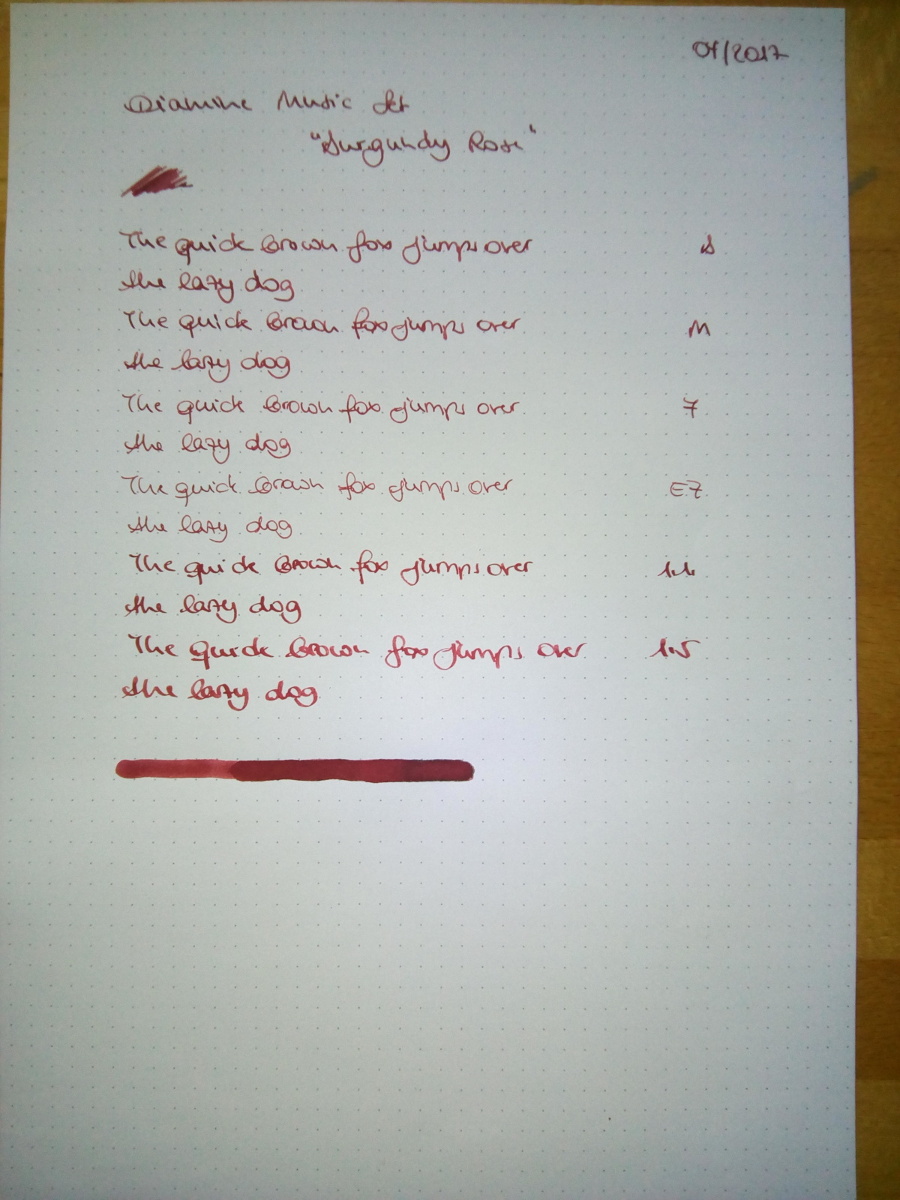 07/2017
Diamine Music Set
"Burgundy Rose"
The quick brown fox jumps over B
the lazy dog
The quick brown fox jumps over M
the lazy dog
The quick brown fox jumps over F
the lazy dog
The quick brown fox jumps over EF
the lazy dog
The quick brown fox jumps over 1.1
the lazy dog
The quick brown fox jumps over 1.5
the lazy dog